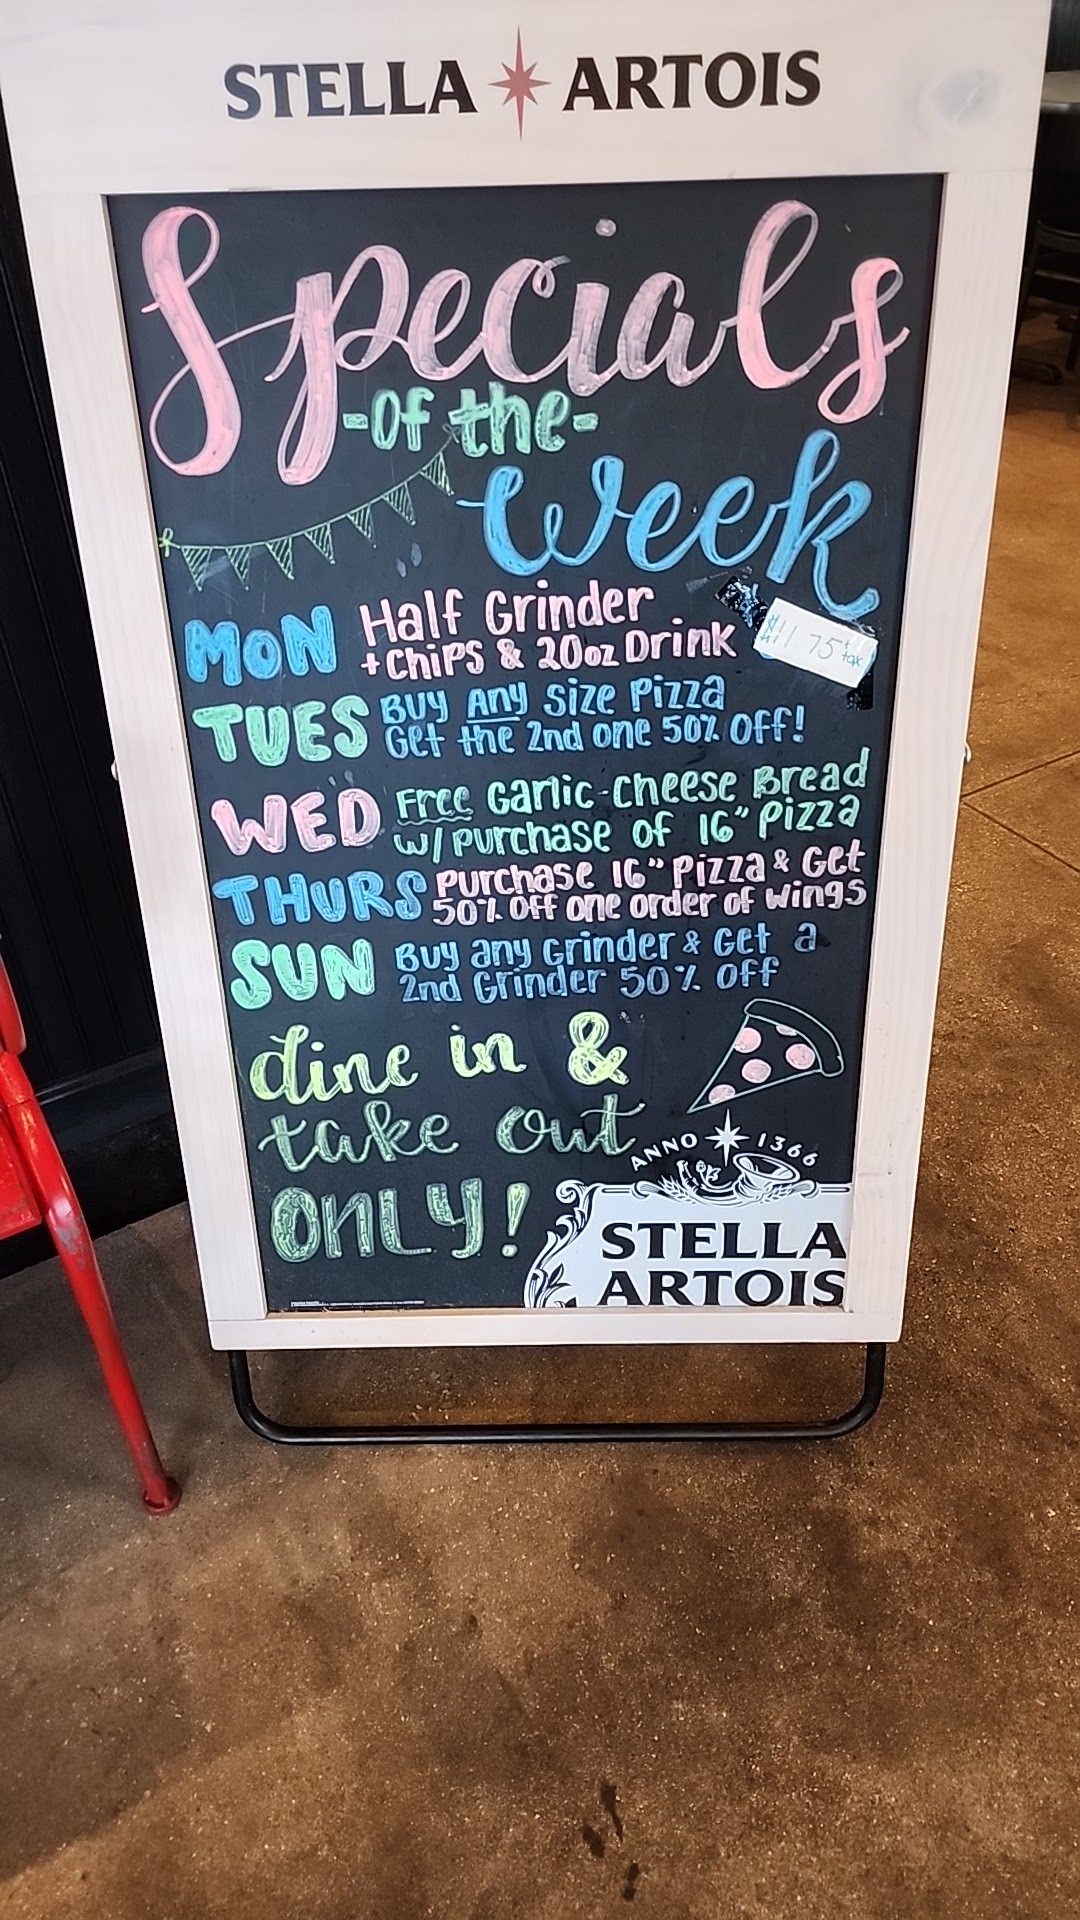 STELLA ARTOIS
Specials
-of the-
Week
MON Half Grinder
+ Chips & 20oz Drink
$11.75 + tax
TUES Buy Any Size Pizza
Get the 2nd one 50% off!
WED Free Garlic-Cheese Bread
w/ purchase of 16" pizza
THURS purchase 16" pizza & Get
50% off one order of wings
SUN Buy any Grinder & Get a
2nd Grinder 50% off
dine in &
take out
ONLY!
ANNO 1366
STELLA
ARTOIS